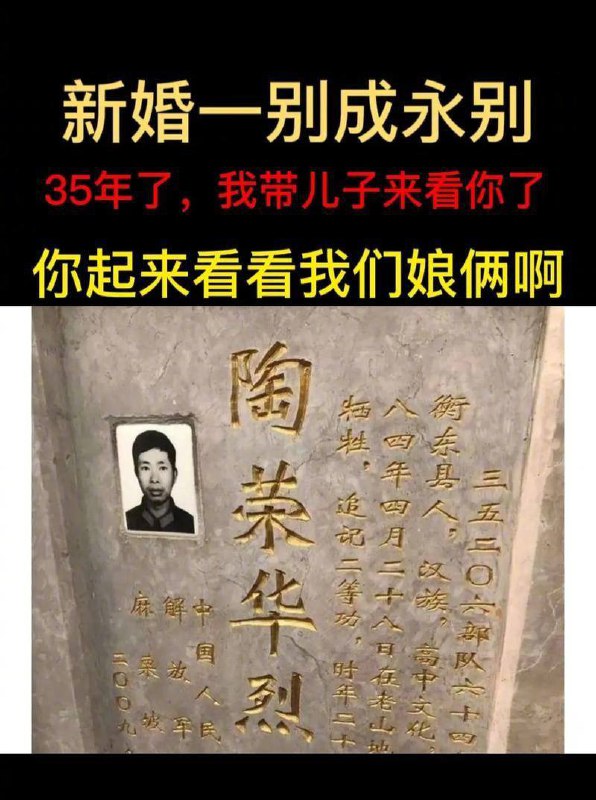 新婚一别成永别
35年了，我带儿子来看你了
你起来看看我们娘俩啊
三五二〇六部队六十四
衡东县人，汉族，高中文化，
八四年四月二十八日在老山地
牺牲，追记二等功，时年二十
陶荣华烈
中国人民
解放军
麻栗坡
二〇〇九